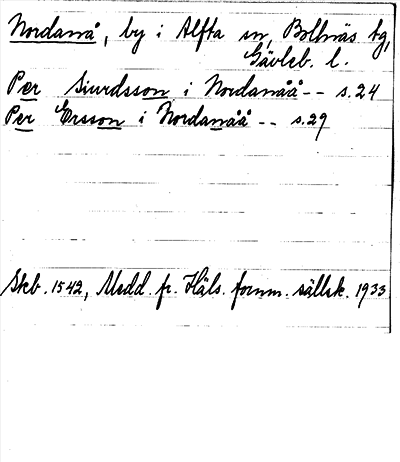 Nordanå, by i Alfta sn, Bollnäs tg,
Gävleb. l.
Per Siurdsson i Nordanåå -- s.24
Per Ersson i Nordanåå -- s.29
Skb. 1542, Medd. fr. Häls. fornm. sällsk. 1933